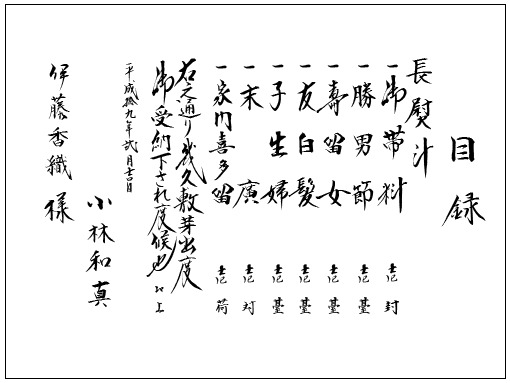 目録
長熨斗
一御帯料 壱封
一勝男節 壱臺
一壽留女 壱臺
一友白髪 壱臺
一子生婦 壱臺
一末廣 壱対
一家内喜多留 壱荷
右之通り幾久敷芽出度
御受納下され度候也 以上
平成拾九年弐月吉日
小林和真
伊藤香織様